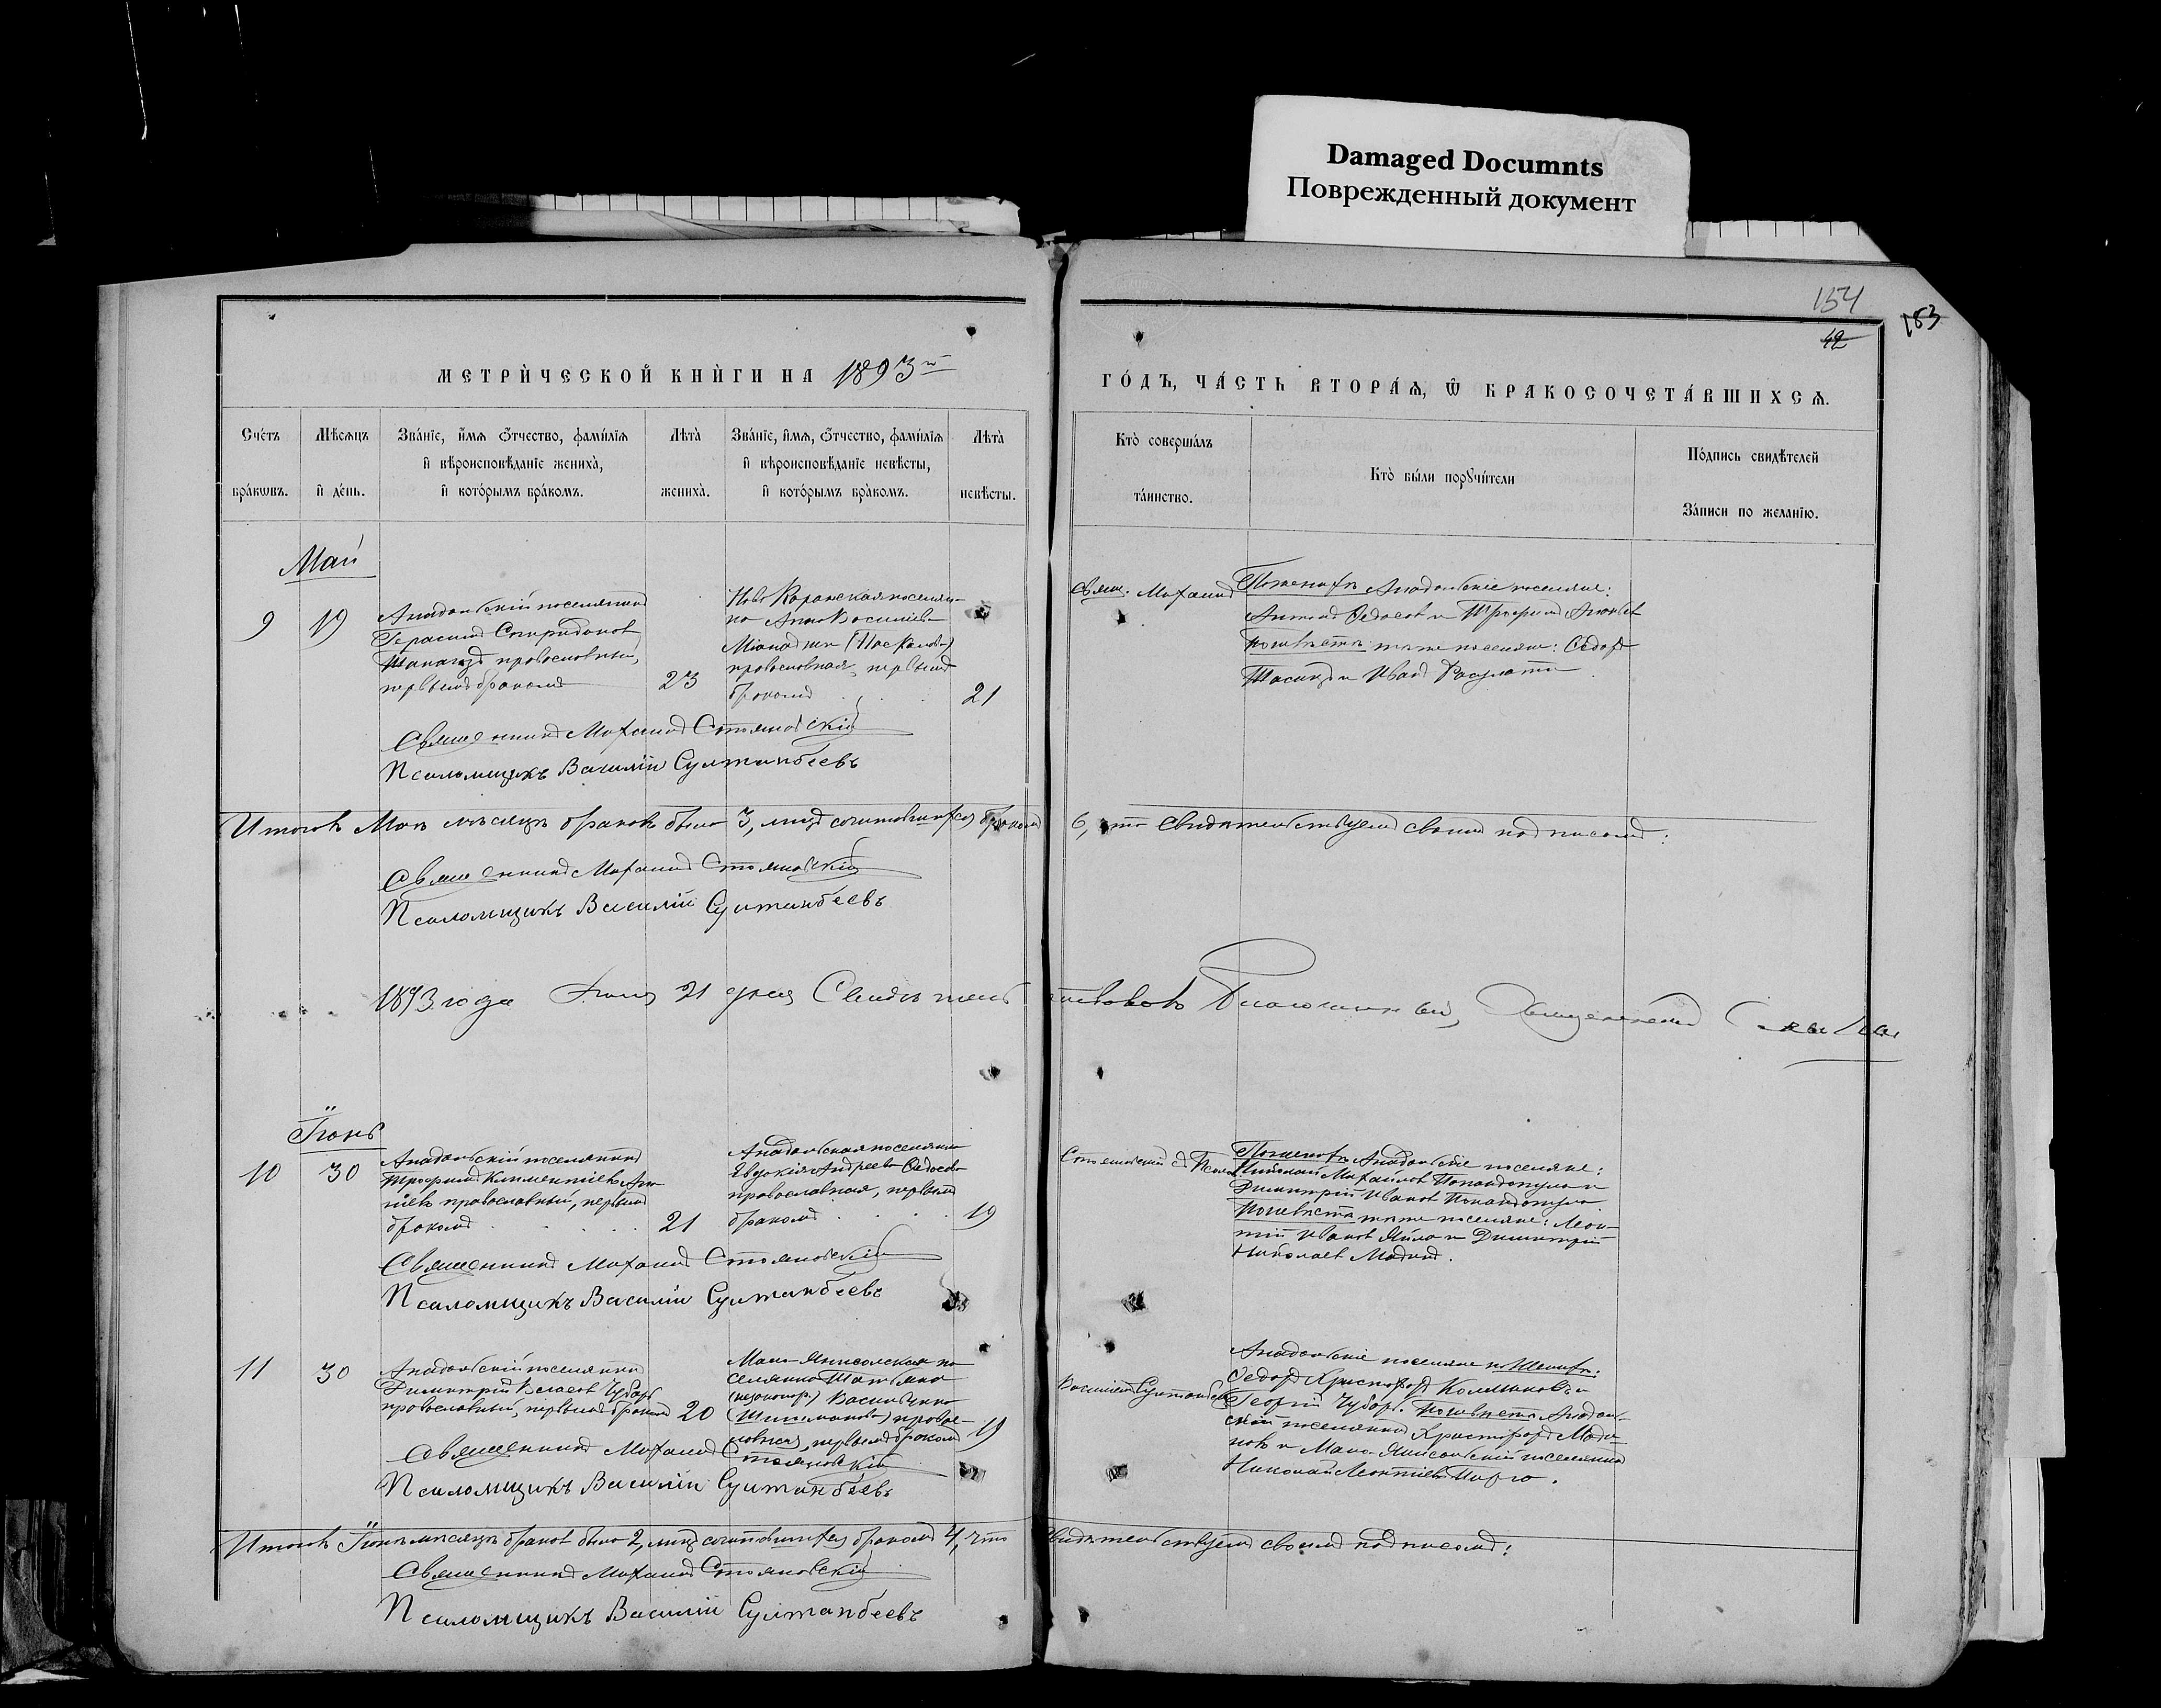 Damaged Documnts
Поврежденный документ
154
183
42
МЕТРИЧЕСКОЙ КНИГИ НА 1893й
ГОДЪ, ЧАСТЬ ВТОРАЯ, Ѿ БРАКОСОЧЕТАВШИХСЯ.
Счетъ браковъ.
Мѣсяцъ и день.
Званіе, имя, отчество, фамилія
и вѣроисповѣданіе жениха,
и которымъ бракомъ.
Лѣта жениха.
Званіе, имя, отчество, фамилія
и вѣроисповѣданіе невѣсты,
и которымъ бракомъ.
Лѣта невѣсты.
Кто совершалъ
таинство.
Кто были поручители
Подпись свидѣтелей
записи по желанію.
Май
9
19
Анадольскій поселянинъ
Герасимъ Спиридоновъ
православный,
первымъ бракомъ
23
Ново Каранская поселян-
ка Анна Васильева
православная, первымъ
бракомъ
21
Свящ. Михаилъ
По женихѣ Анадольскіе поселяне:
Антонъ Федосовъ и Трофимъ
по невѣстѣ тѣ же поселяне: Ѳедоръ
и Иванъ
Священникъ Михаилъ Стояновскій
Псаломщикъ Василій Султанбеевъ
Итого въ Маѣ мѣсяцѣ браковъ было 3, лицъ сочетавшихся бракомъ
6, что свидѣтельствуемъ своимъ подписомъ:
Священникъ Михаилъ Стояновскій
Псаломщикъ Василій Султанбеевъ
1893 года 21 дня Свидѣтель
ствовалъ Благочинный, Священникъ
Іюнь
10
30
Анадольскій поселянинъ
Трофимъ Климентіевъ
православный, первымъ
бракомъ
21
Анадольская поселянка
Евдокія Андреева Федосова
православная, первымъ
бракомъ
19
Стояновскій съ Псалом.
По женихѣ Анадольскіе поселяне:
Николай Михайловъ Попандопуло и
Димитрій Ивановъ Попандопуло.
По невѣстѣ тѣ же поселяне: Леон-
тій Ивановъ Яйло и Димитрій
Николаевъ
Священникъ Михаилъ Стояновскій
Псаломщикъ Василій Султанбеевъ
11
30
Анадольскій поселянинъ
Димитрій Власовъ Чубаръ
православный, первымъ бракомъ
20
Мало-Янисольская по
селянка Татьяна
(незаконор.) Васильевна
правос-
лавная, первымъ бракомъ
19
Василіемъ Султанбеев
Анадольскіе поселяне по женихѣ:
Ѳедоръ Христофоръ и
Георгій Чубаръ. По невѣстѣ Анадоль-
скій поселянинъ Христофоръ
и Мало-Янисольскій поселянинъ
Николай Леонтіевъ
Священникъ Михаилъ Стояновскій
Псаломщикъ Василій Султанбеевъ
Итого въ Іюнѣ мѣсяцѣ браковъ было 2, лицъ сочетавшихся бракомъ 4, что
свидѣтельствуемъ своимъ подписомъ:
Священникъ Михаилъ Стояновскій
Псаломщикъ Василій Султанбеевъ